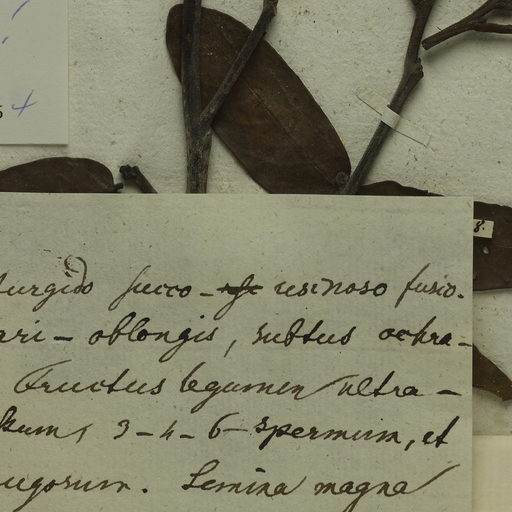 turgido succo - resinoso fusio-
ari - oblongis, subtus ochra-
Fructus legumen ultra -
3-4-6-spermum, et
rugosum. Semina magna
8.